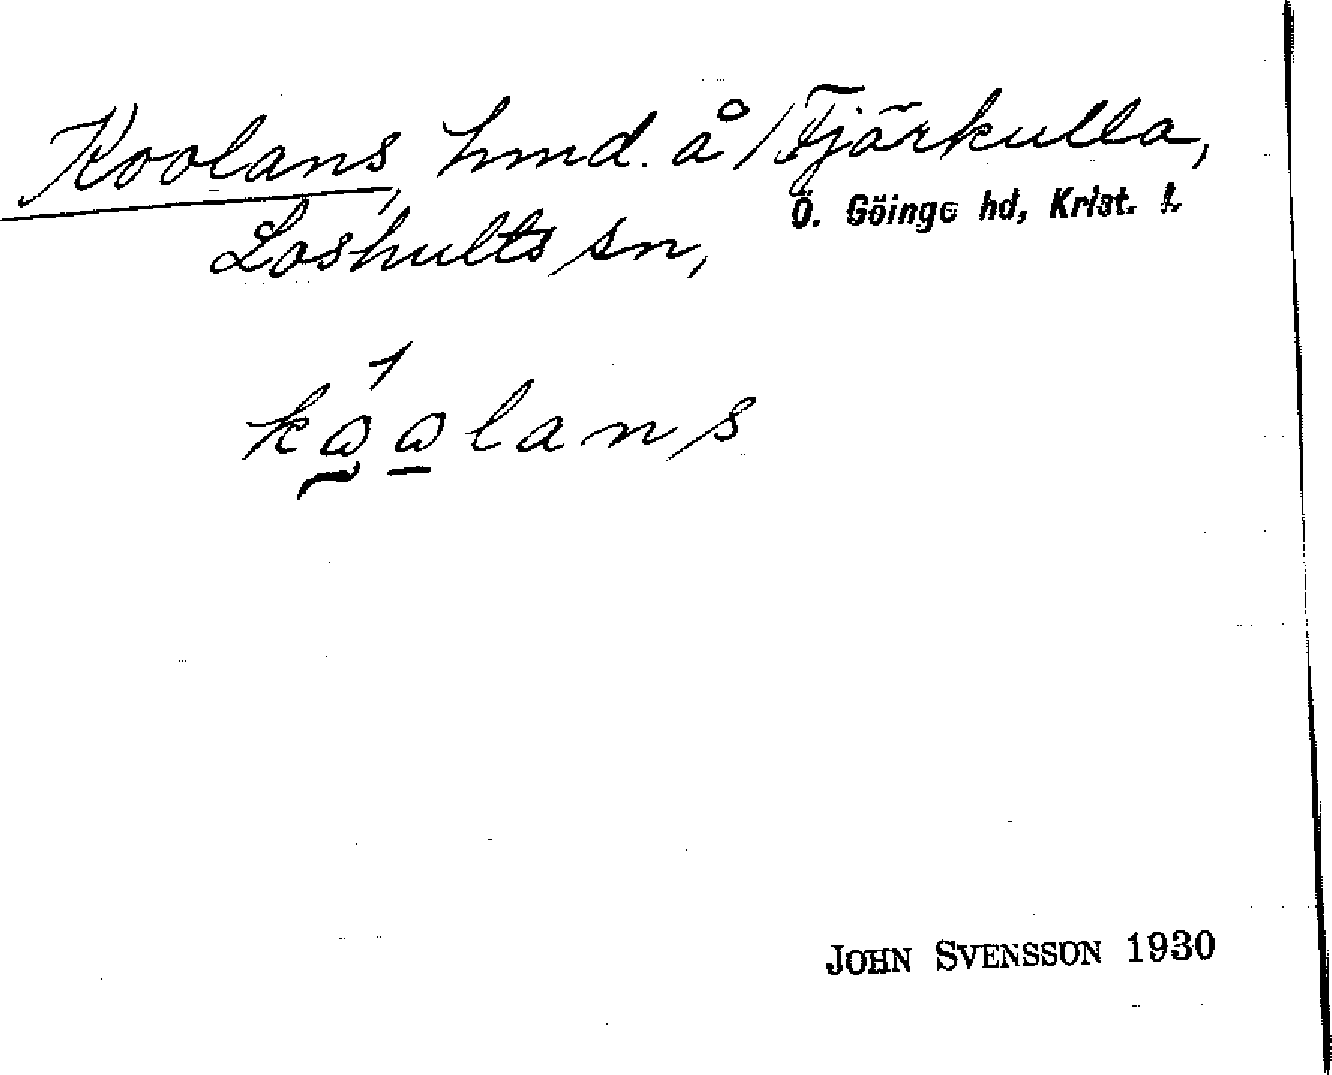 Koolans, hmd. å /Tjärkulla,
Ö. Göinge hd, Krist. l.
Loshults sn,
kωωlans
JOHN SVENSSON 1930